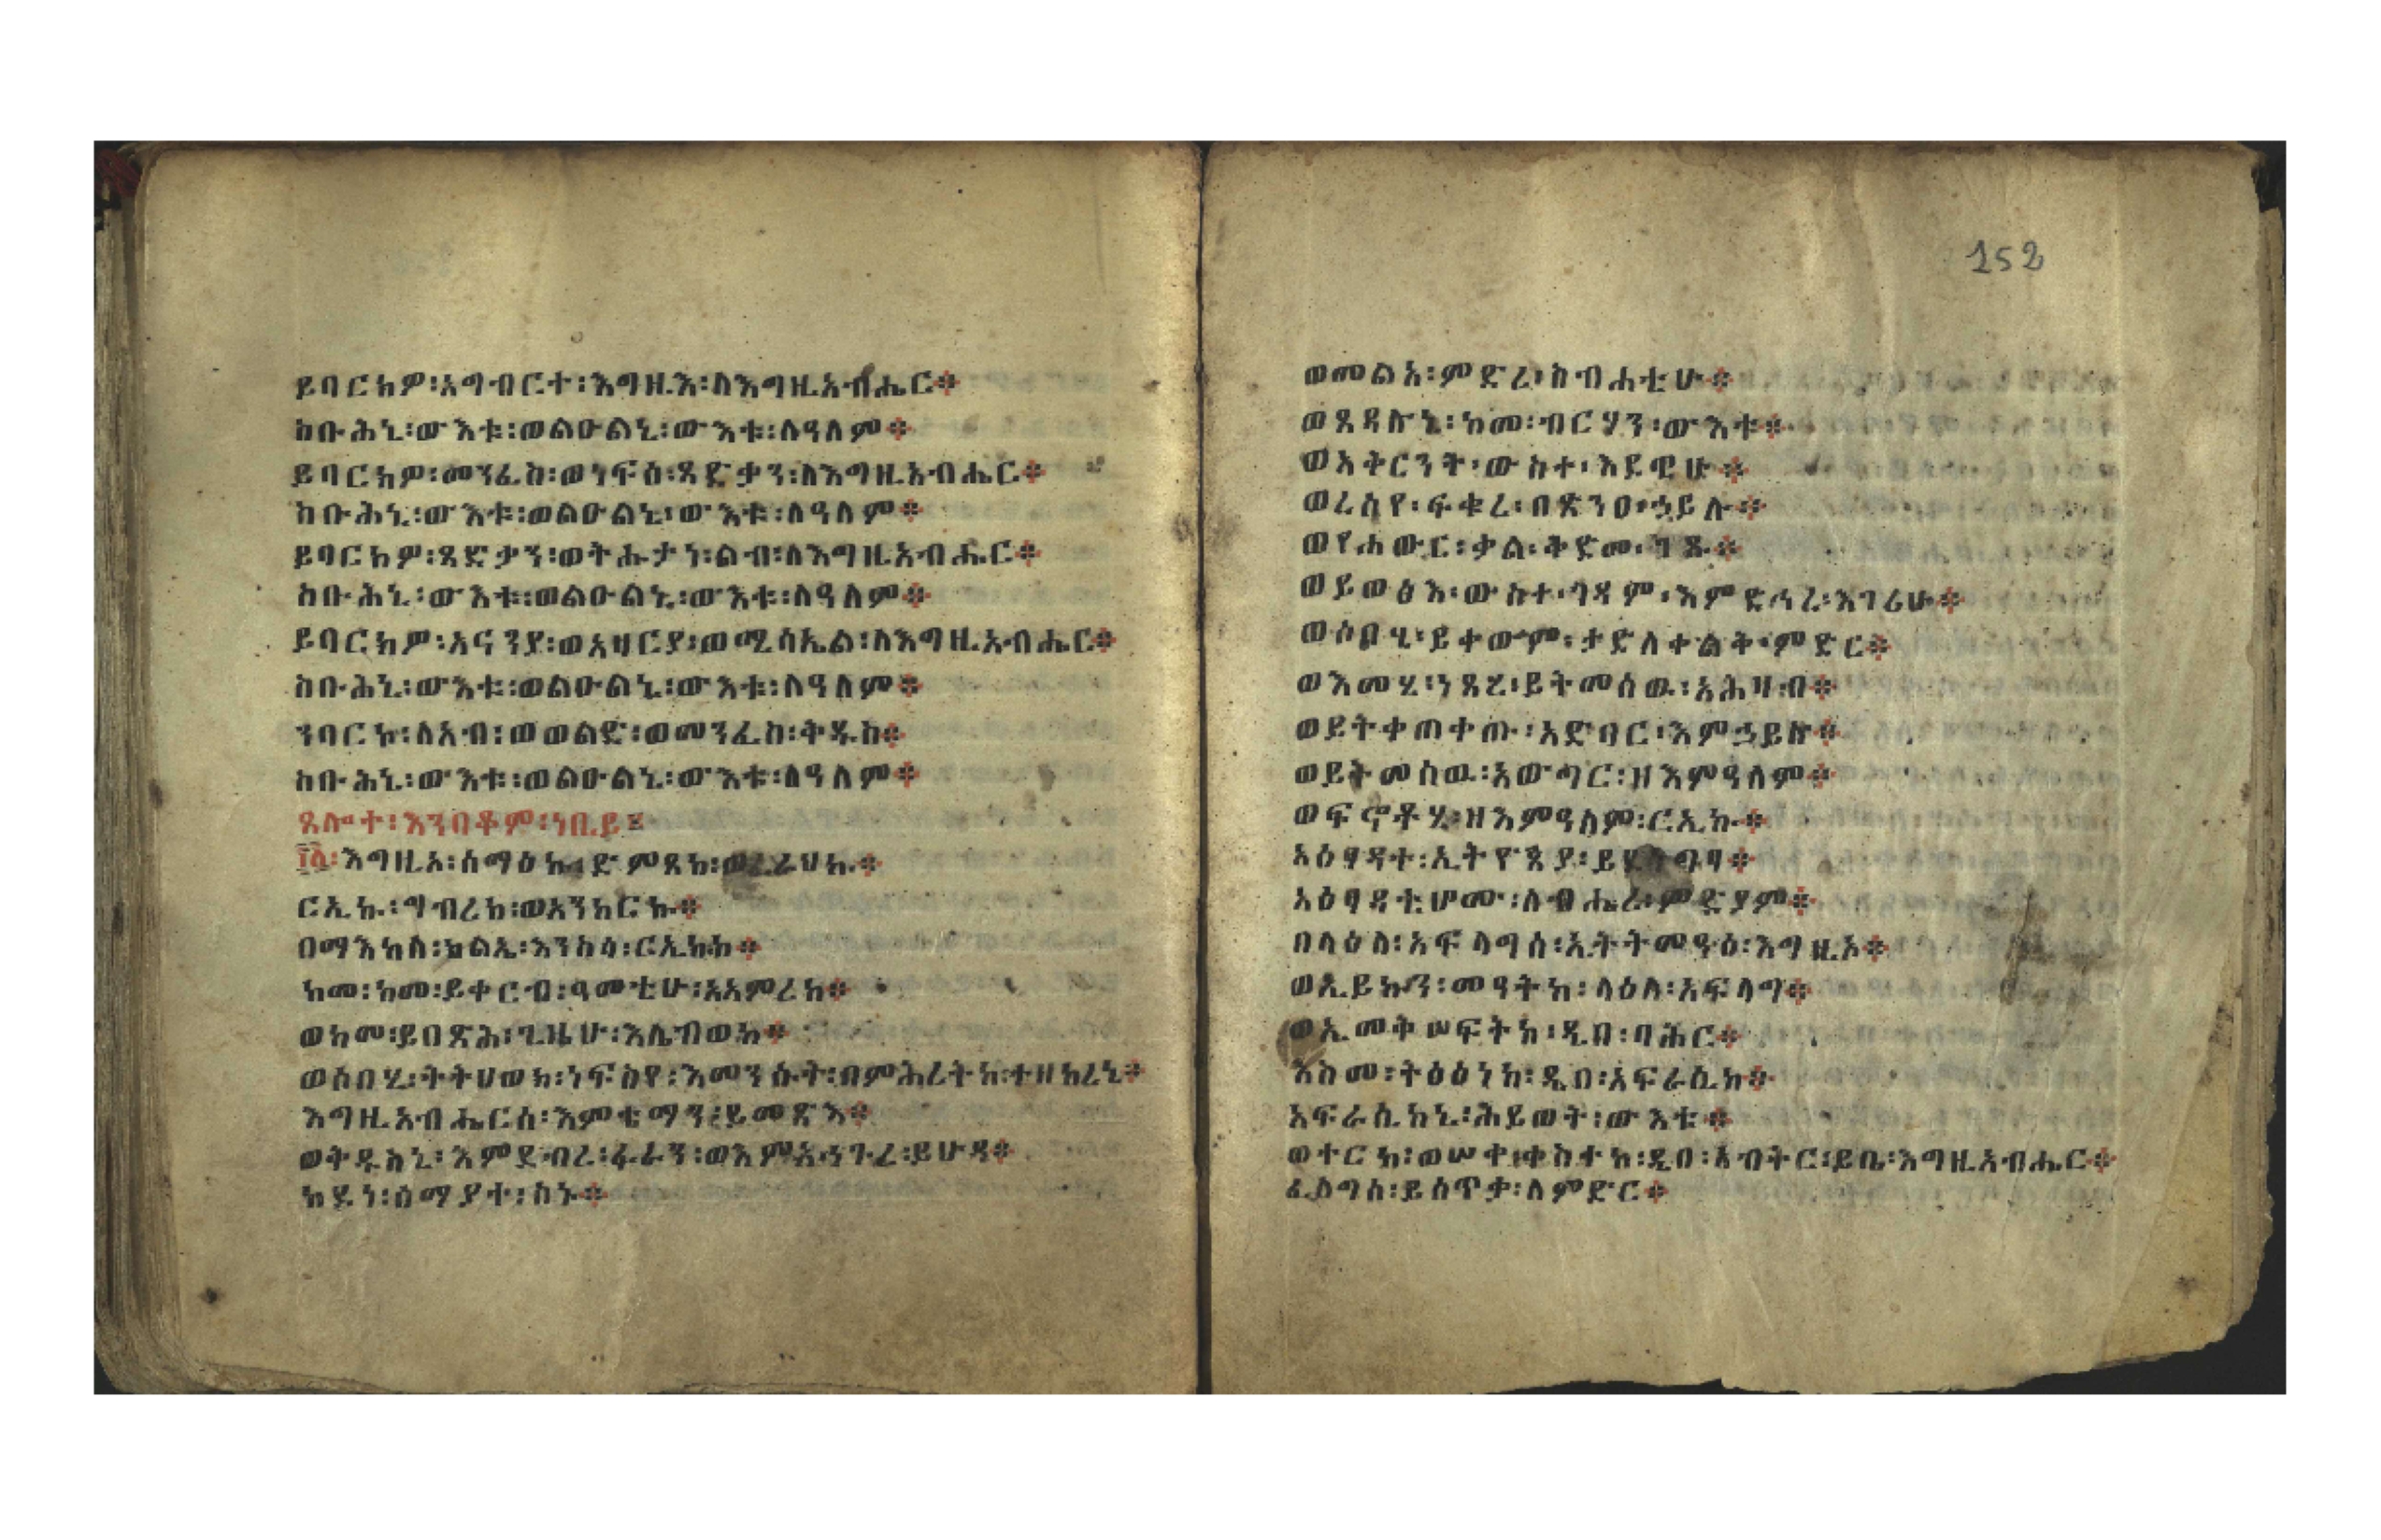 ይባርክዎ፡አግብርተ፡እግዚእ፡ለእግዚአብሔር፨
ስቡሕኒ፡ውእቱ፡ወልዑልኒ፡ውእቱ፡ለዓለም፨
ይባርክዎ፡መንፈስ፡ወነፍሰ፡ጻድቃን፡ለእግዚአብሔር፨
ስቡሕኒ፡ውእቱ፡ወልዑልኒ፡ውእቱ፡ለዓለም፨
ይባርክዎ፡ጻድቃን፡ወትሑታነ፡ልብ፡ለእግዚአብሔር፨
ስቡሕኒ፡ውእቱ፡ወልዑልኒ፡ውእቱ፡ለዓለም፨
ይባርክዎ፡አናንያ፡ወአዛርያ፡ወሚሳኤል፡ለእግዚአብሔር፨
ስቡሕኒ፡ውእቱ፡ወልዑልኒ፡ውእቱ፡ለዓለም፨
ንባርኮ፡ለአብ፡ወወልድ፡ወመንፈስ፡ቅዱስ፨
ስቡሕኒ፡ውእቱ፡ወልዑልኒ፡ውእቱ፡ለዓለም፨
ጸሎተ፡እንበቆም፡ነቢይ፨
እግዚአ፡ሰማዕኩ፡ድምጸከ፡ወፈራህኩ፨
ርኢኩ፡ግብረከ፡ወአንከርኩ፨
በማእከለ፡ክልኤ፡እንስሳ፡ርኢኩከ፨
ከመ፡ከመ፡ይቀርብ፡ዓመቲሁ፡አአምረከ፨
ወከመ፡ይበጽሕ፡ጊዜሁ፡እሌብወከ፨
ወሶበሂ፡ትትሀወክ፡ነፍስየ፡እመንሱት፡በምሕረትከ፡ተዘከረኒ፨
እግዚአብሔርሰ፡እምቴማን፡ይመጽእ፨
ወቅዱስኒ፡እምደብረ፡ፋራን፡ወእምአሕጉረ፡ይሁዳ፨
ከደነ፡ሰማያተ፡ስኑ፨
152
ወመልአ፡ምድረ፡ስብሐቲሁ፨
ወጸዳሉኒ፡ከመ፡ብርሃን፡ውእቱ፨
ወአቅርንት፡ውስተ፡እደዊሁ፨
ወረሰየ፡ፍቁረ፡በጽንዐ፡ኃይሉ፨
ወየሐውር፡ቃል፡ቅድመ፡ገጹ፨
ወይወፅእ፡ውስተ፡ገዳም፡እምድኅረ፡እገሪሁ፨
ወሶበሂ፡ይቀውም፡ታድለቀልቅ፡ምድር፨
ወእመሂ፡ነጸረ፡ይትመሰዉ፡አሕዛብ፨
ወይትቀጠቀጡ፡አድባር፡እምኃይሉ፨
ወይትመሰዉ፡አውግር፡ዘእምዓለም፨
ወፍኖቶሂ፡ዘእምዓለም፡ርኢኩ፨
አዕፃዳተ፡ኢትዮጵያ፡ይደነግፃ፨
አዕፃዳቲሆሙ፡ለብሔረ፡ምድያም፨
በላዕለ፡አፍላግሰ፡ኢትትመዓዕ፡እግዚኦ፨
ወኢይኩን፡መዓትከ፡ላዕለ፡አፍላግ፨
ወኢመቅሠፍትከ፡ዲበ፡ባሕር፨
እስመ፡ትፅዕነከ፡ዲበ፡አፍራሲከ፨
አፍራሲከኒ፡ሕይወት፡ውእቱ፨
ወተርከ፡ወሠቀ፡ቀስተከ፡ዲበ፡አብትር፡ይቤ፡እግዚአብሔር፨
ፈለግሰ፡ይሰጥቃ፡ለምድር፨